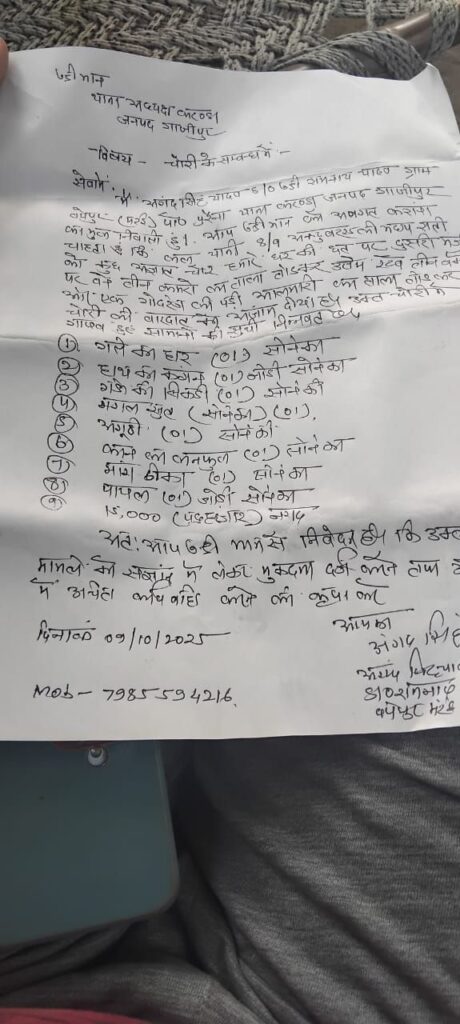 श्री मान
थाना अध्यक्ष करण्डा
जनपद गाजीपुर
-विषय - चोरी के सम्बन्ध में:-
सेवा में अंगद सिंह यादव S/O श्री रामनाथ यादव ग्राम
थाना करण्डा जनपद गाजीपुर
का मूल निवासी हूँ। आप श्री मान को अवगत कराना
चाहता हूँ कि कल यानी 8/9 अक्टूबर की मध्य राती
को कुछ अज्ञात चोर हमारे घर की छत पर दुसरी मंजिल
पर बने तीन कमरो का ताला तोडकर उसमे रखे तीन
और एक गोदरेज की आलमारी का ताला तोड कर
चोरी की वारदात को अंजाम दीया है। उक्त चोरी में
गायब हुए सामानो की सुची निम्नवत है
① गले का हार (01) सोने का
② हाथ का कंगन (01) जोडी सोने का
③ गले की सिकडी (01) सोने की
④ मंगल सुत्र (सोने का) (01).
⑤ अंगुठी (01) सोने की
⑥ कान का कनफुल (01) सोने का
⑦ मांग टीका (01) सोने का
⑧ पायल (01) जोडी सोने का
⑨ 15,000 (पंद्रह हजार) नगद
अतः आप श्री मान से निवेदन है कि उक्त
मामले को संज्ञान में लेकर मुकदमा दर्ज करने तथा
में उचित कार्यवाही करने की कृपा करे
दिनांक 09/10/2025
आपका
अंगद सिंह
Mob- 7985594216.